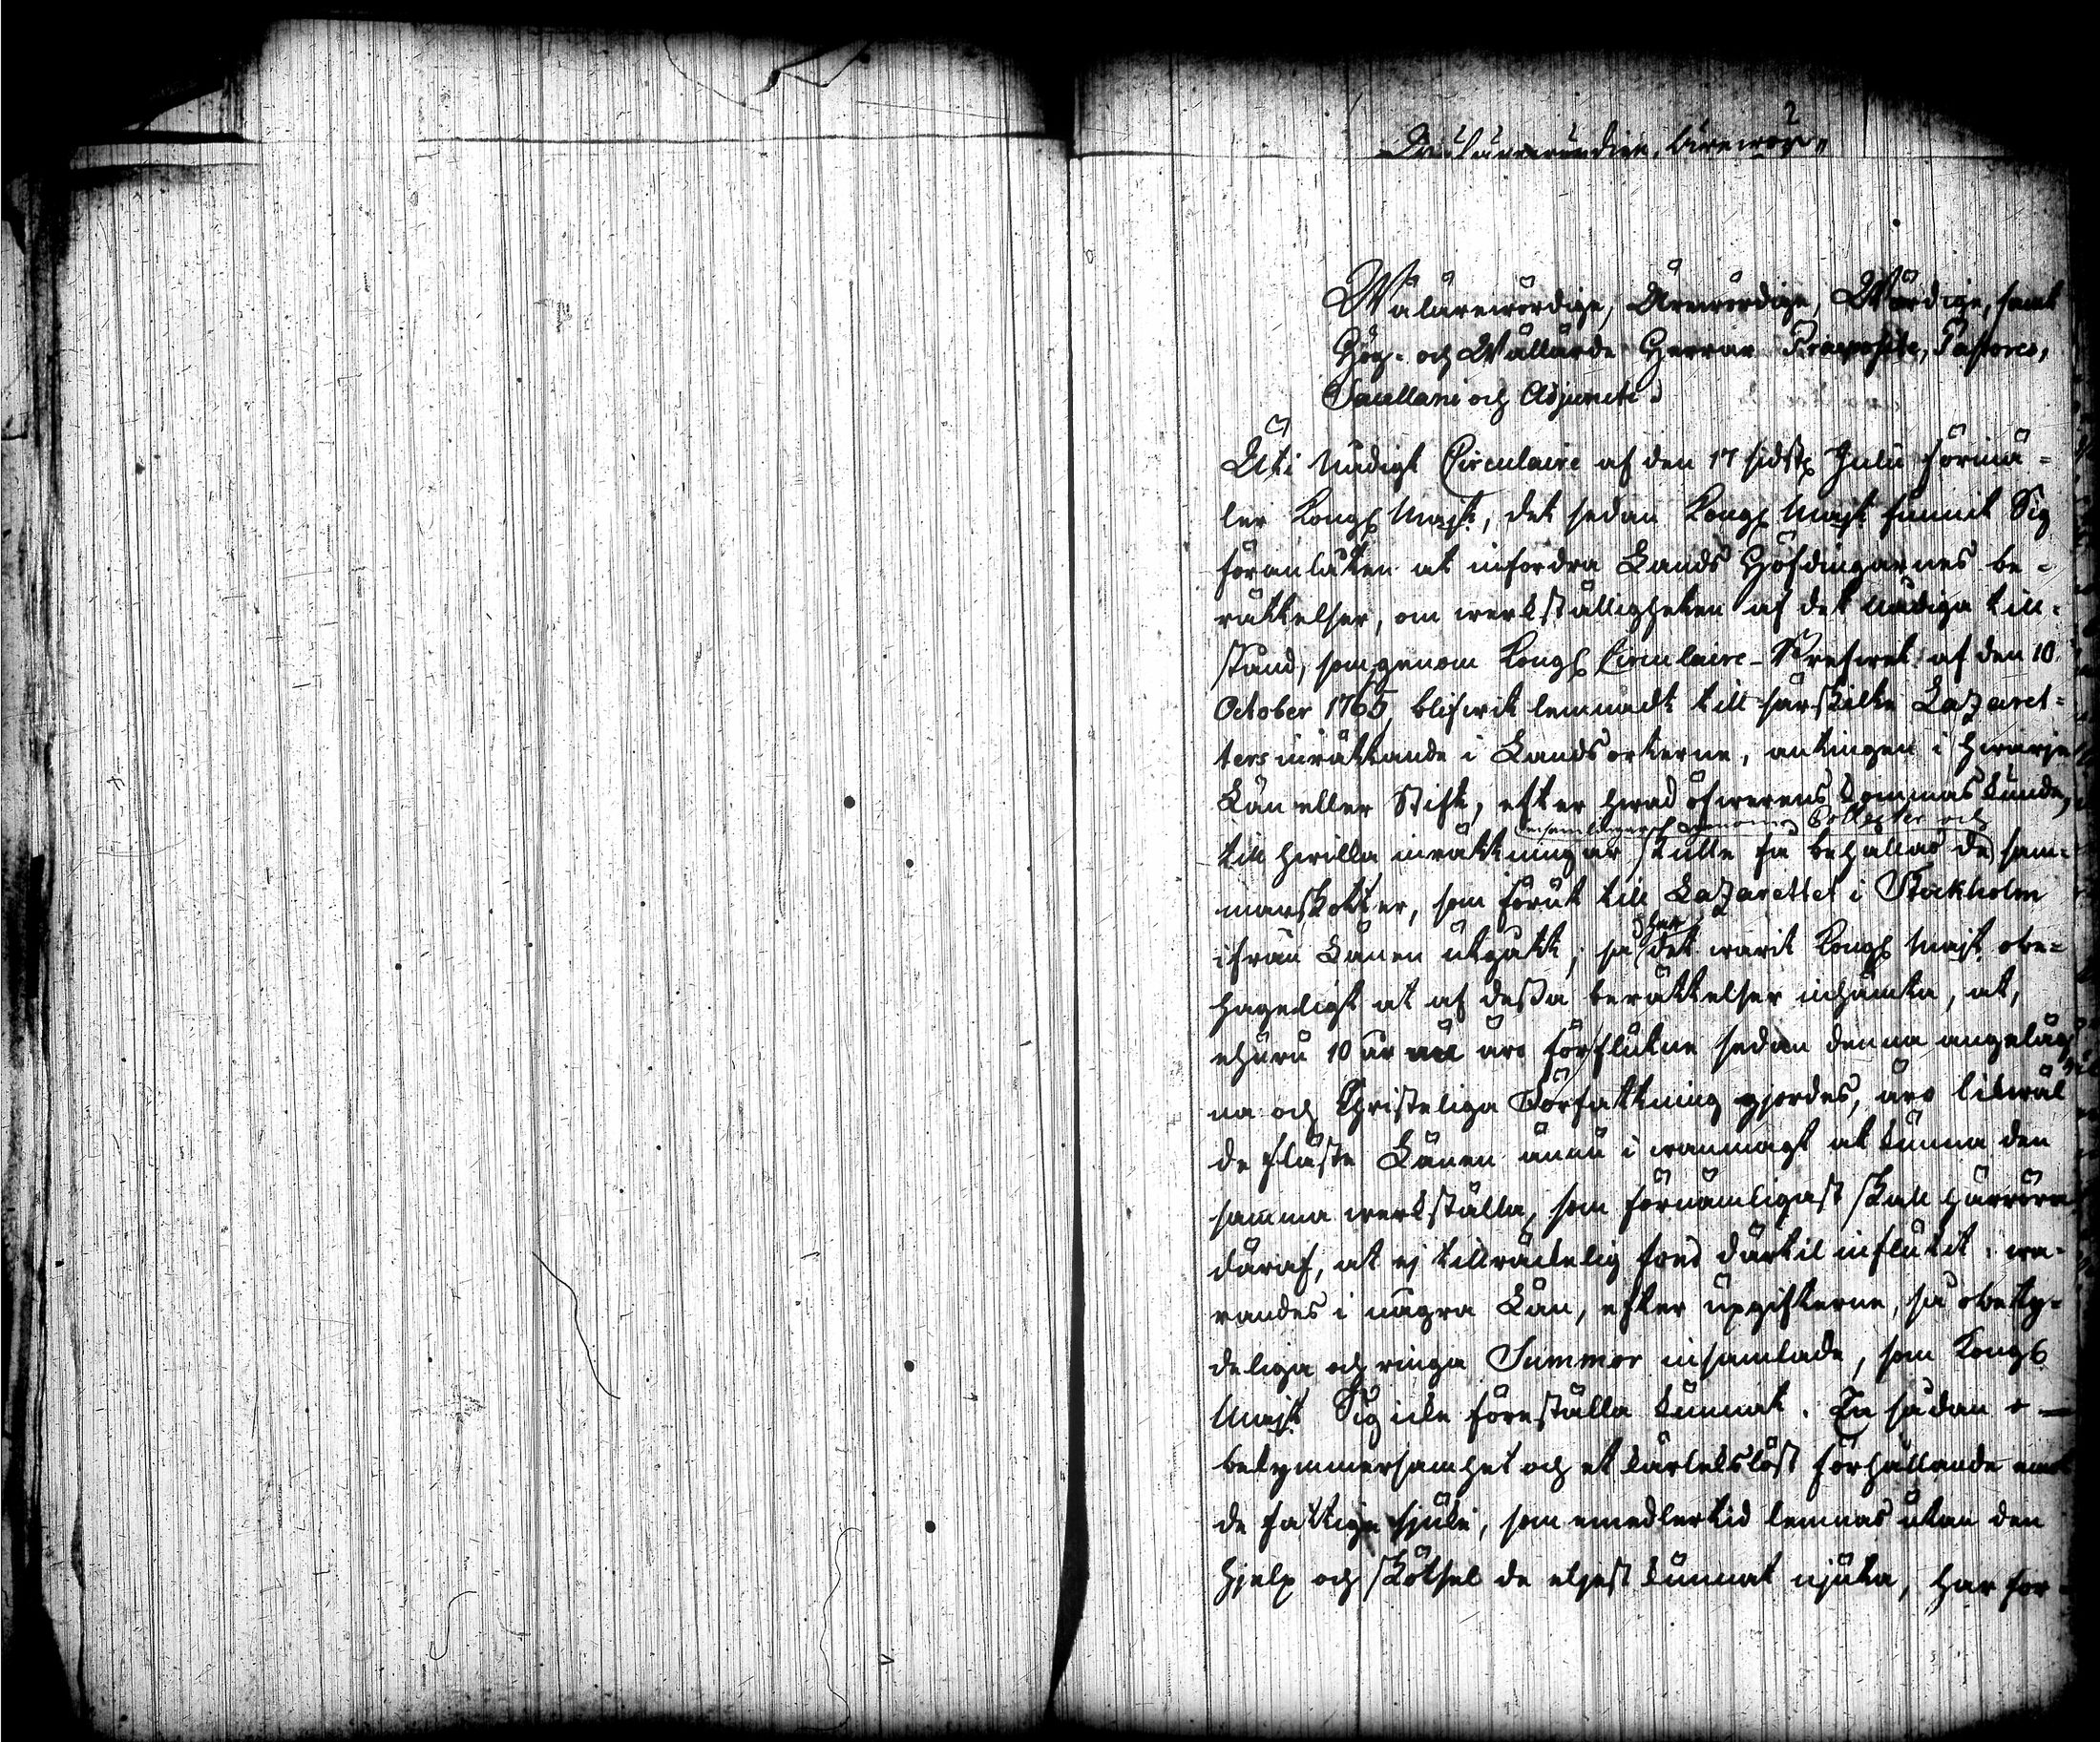 2
Wälärewördige, Ärewördige, Wördige, samt
Hög- och Wällärde Herrar Præpositi, Pastores,
Sacellani och Adjuncti.
Uti Nådigt Circulaire af den 17 sidstl Julii förmä-
ler Kongl Majt, det sedan Kongl Majt funnit Sig
föranlåten at infordra Lands Höfdingarnes be-
rättelser, om werkställigheten af det Nådiga till-
stånd, som genom Kongl Circulaire-Brefwet af den 10
October 1765, blifwit lemnadt till särskilte Lazaret-
ters inrättande i Landsorterne, antingen i hwarje
Län eller Stift, efter hwad öfwerens kommas kunde,
insamlingar genom Collecter och
till hwilka inrättningar skulle få behållas de sam-
manskotter, som förut till Lazarettet i Stockholm
ifrån Länen utgått; så
har
det warit Kongl Majt obe-
hageligt at af dessa berättelser inhämta, at,
ehuru 10 år äro förflutne sedan denna angeläg-
na och Christeliga Författning gjordes, äro likwäl
de flåste Länen ännu i wanmagt at kunna den
samma werkställa, som förnämligast skall härröra
däraf, at ej tillräckelig fond därtil influtit, wa-
randes i några Län, efter upgifterne, så obety-
deliga och ringa Summor insamlade, som Kongl
Majt Sig icke föreställa kunnat. En sådan o-
bekymmersamhet och et kärlekslöst förhållande emot
de fattige sjuke, som emedlertid lemnas utan den
hjelp och skötsel de eljest kunnat njuta, har för-